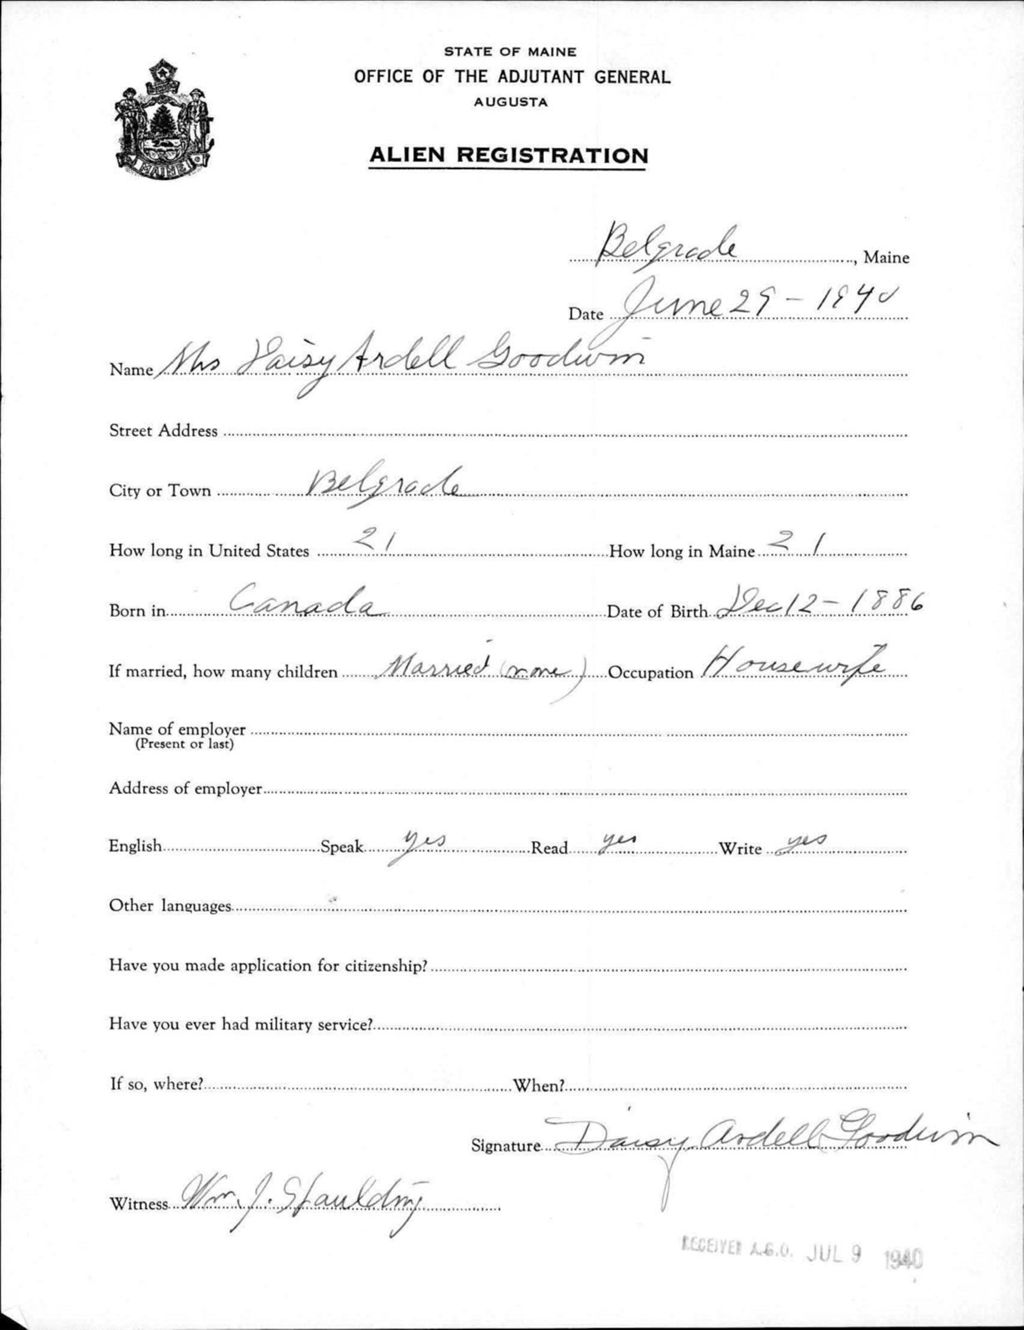 STATE OF MAINE
OFFICE OF THE ADJUTANT GENERAL
AUGUSTA
ALIEN REGISTRATION
MAINE
Belgrade, Maine
Date June 29 - 1940
Name Mrs Daisy Ardell Goodwin
Street Address
City or Town Belgrade
How long in United States 21 How long in Maine 21
Born in Canada Date of Birth Dec 12 - 1886
If married, how many children Married (none) Occupation Housewife
Name of employer
(Present or last)
Address of employer
English Speak yes Read yes Write yes
Other languages
Have you made application for citizenship?
Have you ever had military service?
If so, where? When?
Signature Daisy Ardell Goodwin
Witness Wm. J. Spaulding
RECEIVED A.G.O. JUL 9 1940